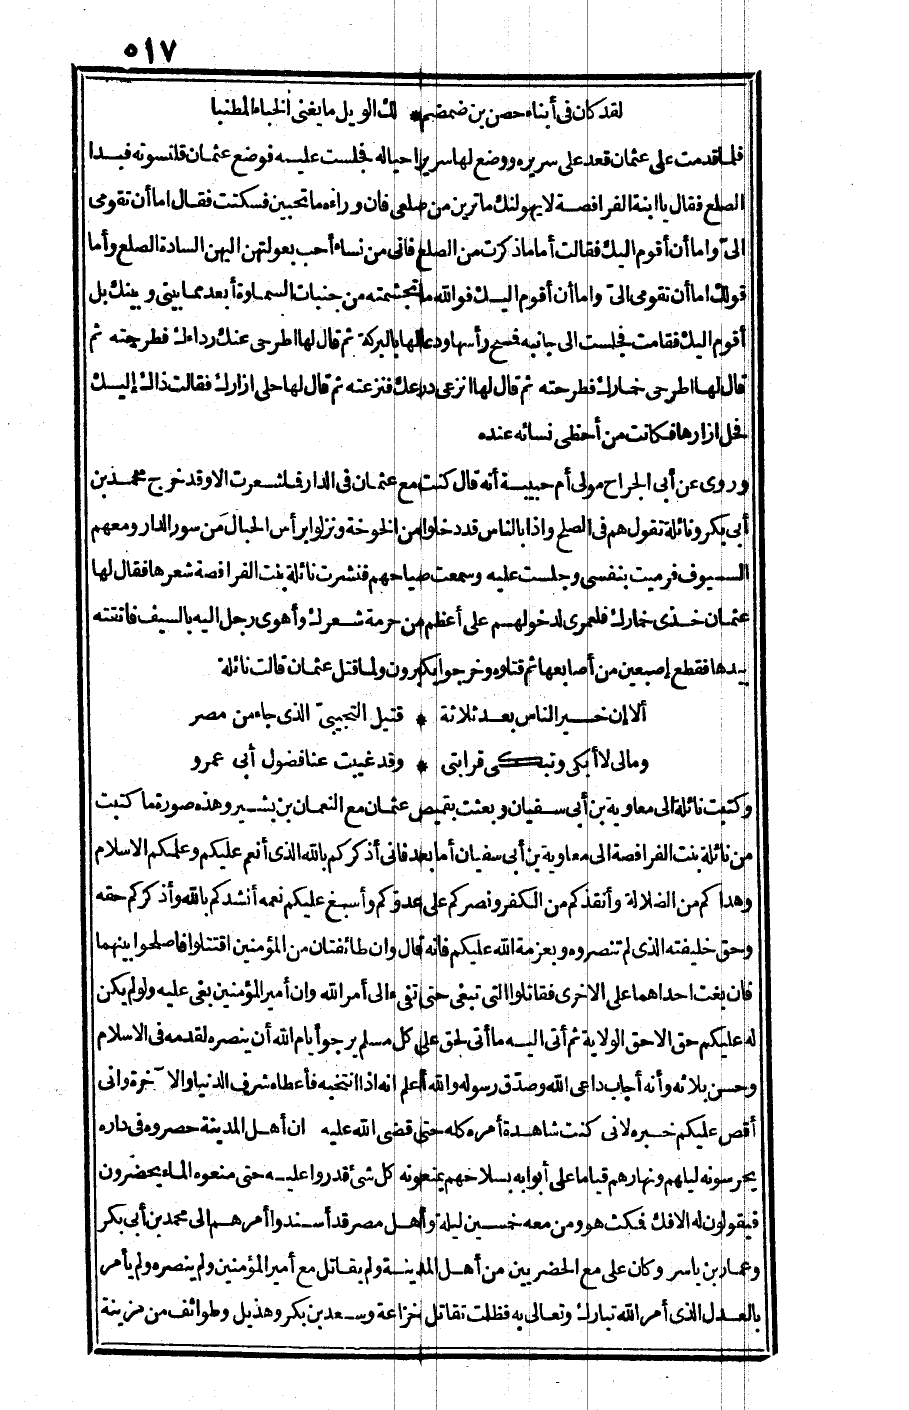 ٥١٧
لقد كان فى أبناء حصن بن ضمضم * لك الويل ما يغنى الخباء المطنبا
فلما قدمت على عثمان قعد على سريره ووضع لها سريرا حياله فجلست عليه فوضع عثمان قلنسوته فبدا
الصلع فقال يا ابنة الفرافصة لا يهولنك ما ترين من صلعى فان وراءه ما تحبين فسكتت فقال اما أن تقومى
الىّ واما أن أقوم اليك فقالت أما ما ذكرت من الصلع فانى من نساء أحب بعولتهن اليهن السادة الصلع وأما
قولك اما أن تقومى الىّ واما أن أقوم اليك فوالله ما تجشمته من جنبات السماوة أبعد مما بينى وبينك بل
أقوم اليك فقامت فجلست الى جانبه فمسح رأسها ودعا لها بالبركة ثم قال لها اطرحى عنك رداءك فطرحته ثم
قال لها اطرحى خمارك فطرحته ثم قال لها انزعى درعك فنزعته ثم قال لها حلى ازارك فقالت ذاك إليك
فحل ازارها فكانت من أحظى نسائه عنده
وروى عن أبى الجراح مولى أم حبيبة أنه قال كنت مع عثمان فى الدار فما شعرت الا وقد خرج محمد بن
أبى بكر ونائلة تقول هم فى الصلح واذا بالناس قد دخلوا من الخوخة ونزلوا برأس الحبال من سور الدار ومعهم
السيوف فرميت بنفسى وجلست عليه وسمعت صياحهم فنشرت نائلة بنت الفرافصة شعرها فقال لها
عثمان خذى خمارك فلعمرى لدخولهم على أعظم من حرمة شعرك وأهوى رجل اليه بالسيف فاتقته
بيدها فقطع إصبعين من أصابعها ثم قتلوه وخرجوا يكبرون ولما قتل عثمان قالت نائلة
ألا إن خير الناس بعد ثلاثة * قتيل التجيبىّ الذى جاء من مصر
ومالى لا أبكى وتبكى قرابتى * وقد غيبت عنا فضول أبى عمرو
وكتبت نائلة الى معاوية بن أبى سفيان وبعثت بقميص عثمان مع النعمان بن بشير وهذه صورة ما كتبت
من نائلة بنت الفرافصة الى معاوية بن أبى سفيان أما بعد فانى أذكركم بالله الذى أنعم عليكم وعلمكم الاسلام
وهداكم من الضلالة وأنقذكم من الكفر ونصركم على عدوّكم وأسبغ عليكم نعمه أنشدكم بالله وأذكركم حقه
وحق خليفته الذى لم تنصروه وبعزمة الله عليكم فانه قال وان طائفتان من المؤمنين اقتتلوا فاصلحوا بينهما
فان بغت احداهما على الاخرى فقاتلوا التى تبغى حتى تفىء الى أمر الله وان أمير المؤمنين بغى عليه ولو لم يكن
له عليكم حق الا حق الولاية ثم أتى اليه ما أتى لحق على كل مسلم يرجو أيام الله أن ينصره لقدمه فى الاسلام
وحسن بلائه وأنه أجاب داعى الله وصدّق رسوله والله أعلم انه اذا انتخبه فأعطاه شرف الدنيا والآخرة وانى
أقص عليكم خبره لانى كنت شاهدة أمره كله حتى قضى الله عليه ان أهل المدينة حصروه فى داره
يحرسونه ليلهم ونهارهم قياما على أبوابه بسلاحهم يمنعونه كل شئ قدروا عليه حتى منعوه الماء يحضرون
فيقولون له الافك فمكث هو ومن معه خمسين ليلة وأهل مصر قد أسندوا أمرهم الى محمد بن أبى بكر
وعمار بن ياسر وكان على مع الحضريين من أهل المدينة ولم يقاتل مع أمير المؤمنين ولم ينصره ولم يأمر
بالعدل الذى أمر الله تبارك وتعالى به فظلت تقاتل خزاعة وسعد بن بكر وهذيل وطوائف من مزينة